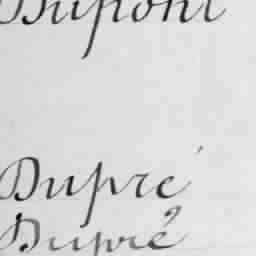 Dupont
Dupré
Dupré